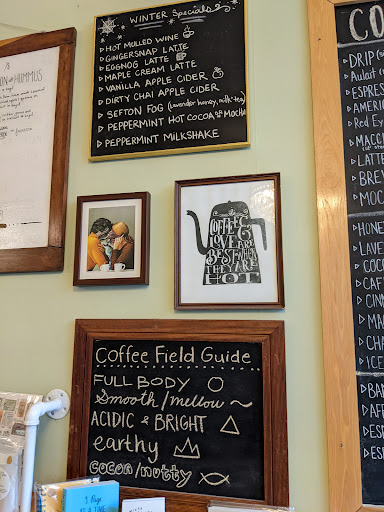 WINTER Specials
HOT MULLED WINE
GINGERSNAP LATTE
EGGNOG LATTE
MAPLE CREAM LATTE
VANILLA APPLE CIDER
DIRTY CHAI APPLE CIDER
SEFTON FOG (lavender, honey, milk + tea)
PEPPERMINT HOT COCOA or MOCHA
PEPPERMINT MILKSHAKE
HUMMUS
COFFEE &
LOVE ARE
BEST WHEN
THEY ARE
HOT
Coffee Field Guide
FULL BODY
Smooth/mellow
ACIDIC & BRIGHT
earthy
cocoa/nutty
CO
DRIP
Aulait
ESPRE
AMERI
Red Ey
MACC
LATTE
BREV
MOC
HONE
LAVE
COC
CAF
CIN
MA
CHA
ICE
BAR
AFF
ESP
ESP